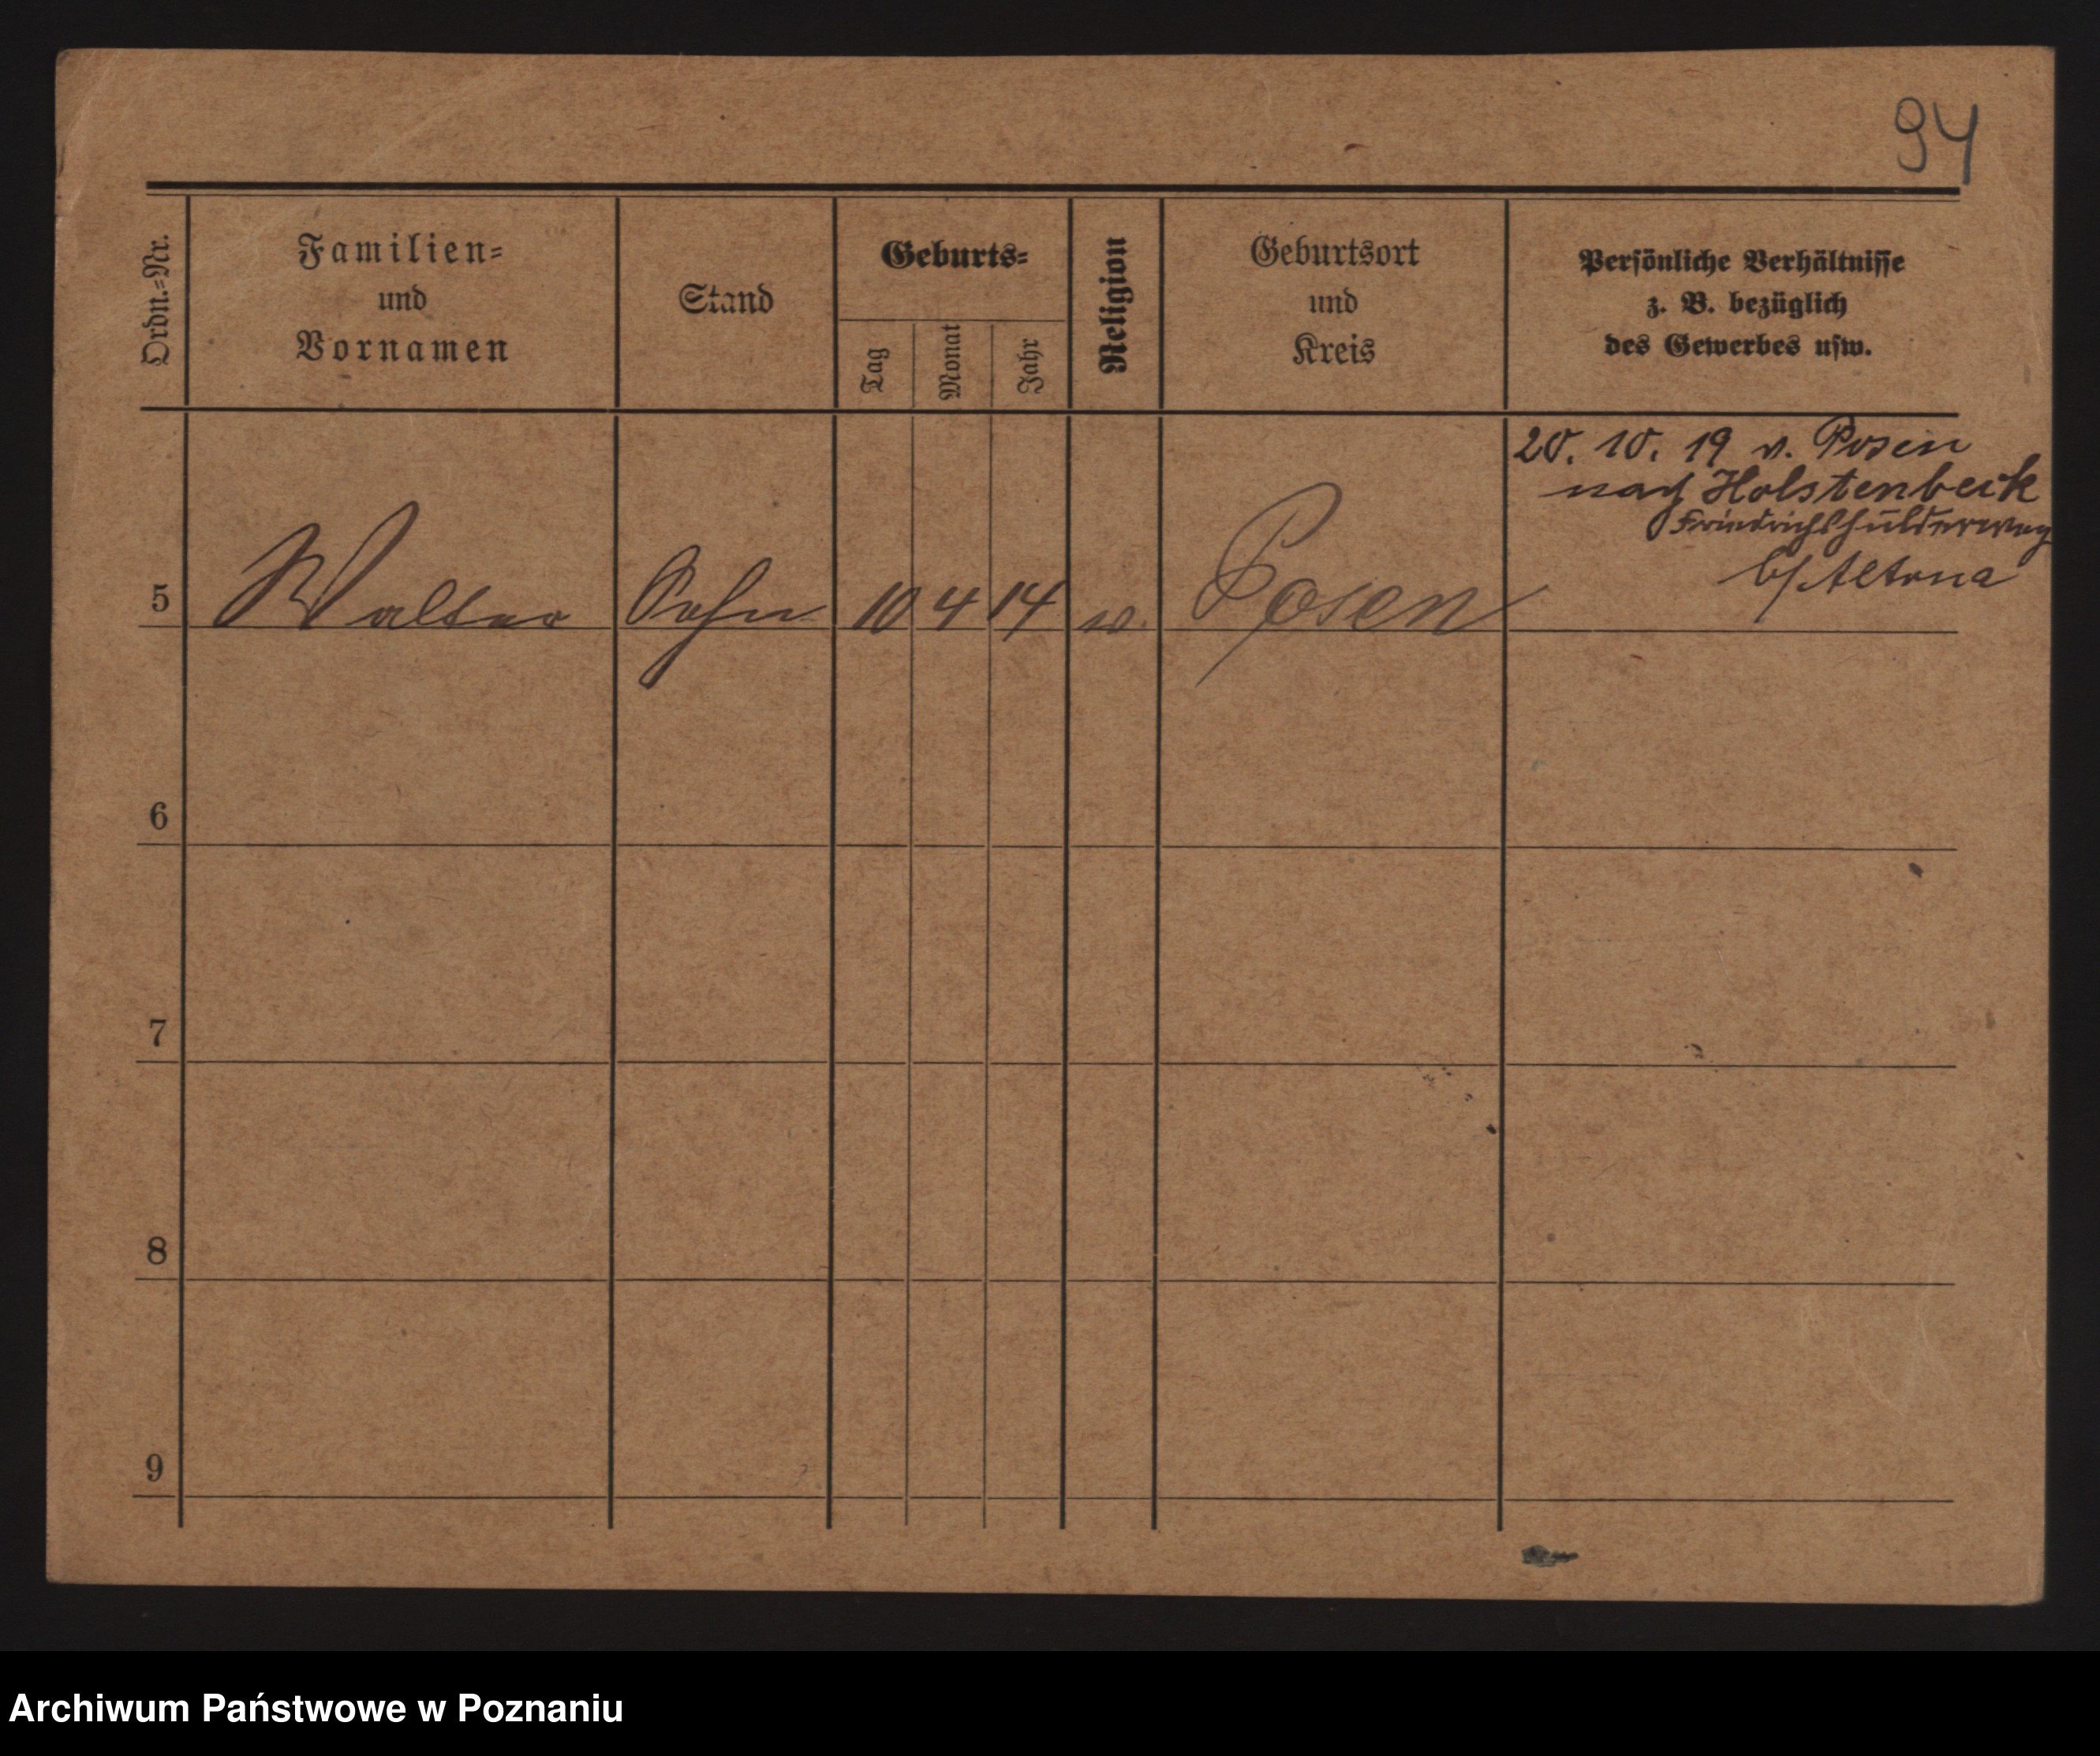 94
Ordn.-Nr.
Familien-
und
Vornamen
Stand
Geburts-
Tag
Monat
Jahr
Religion
Geburtsort
und
Kreis
Persönliche Verhältnisse
z. B. bezüglich
des Gewerbes usw.
20. 10. 19 v. Posen
nach Holstenbeck
b/Altona
5 Walter Sohn 10 4 14 Posen
6
7
8
9
Archiwum Państwowe w Poznaniu